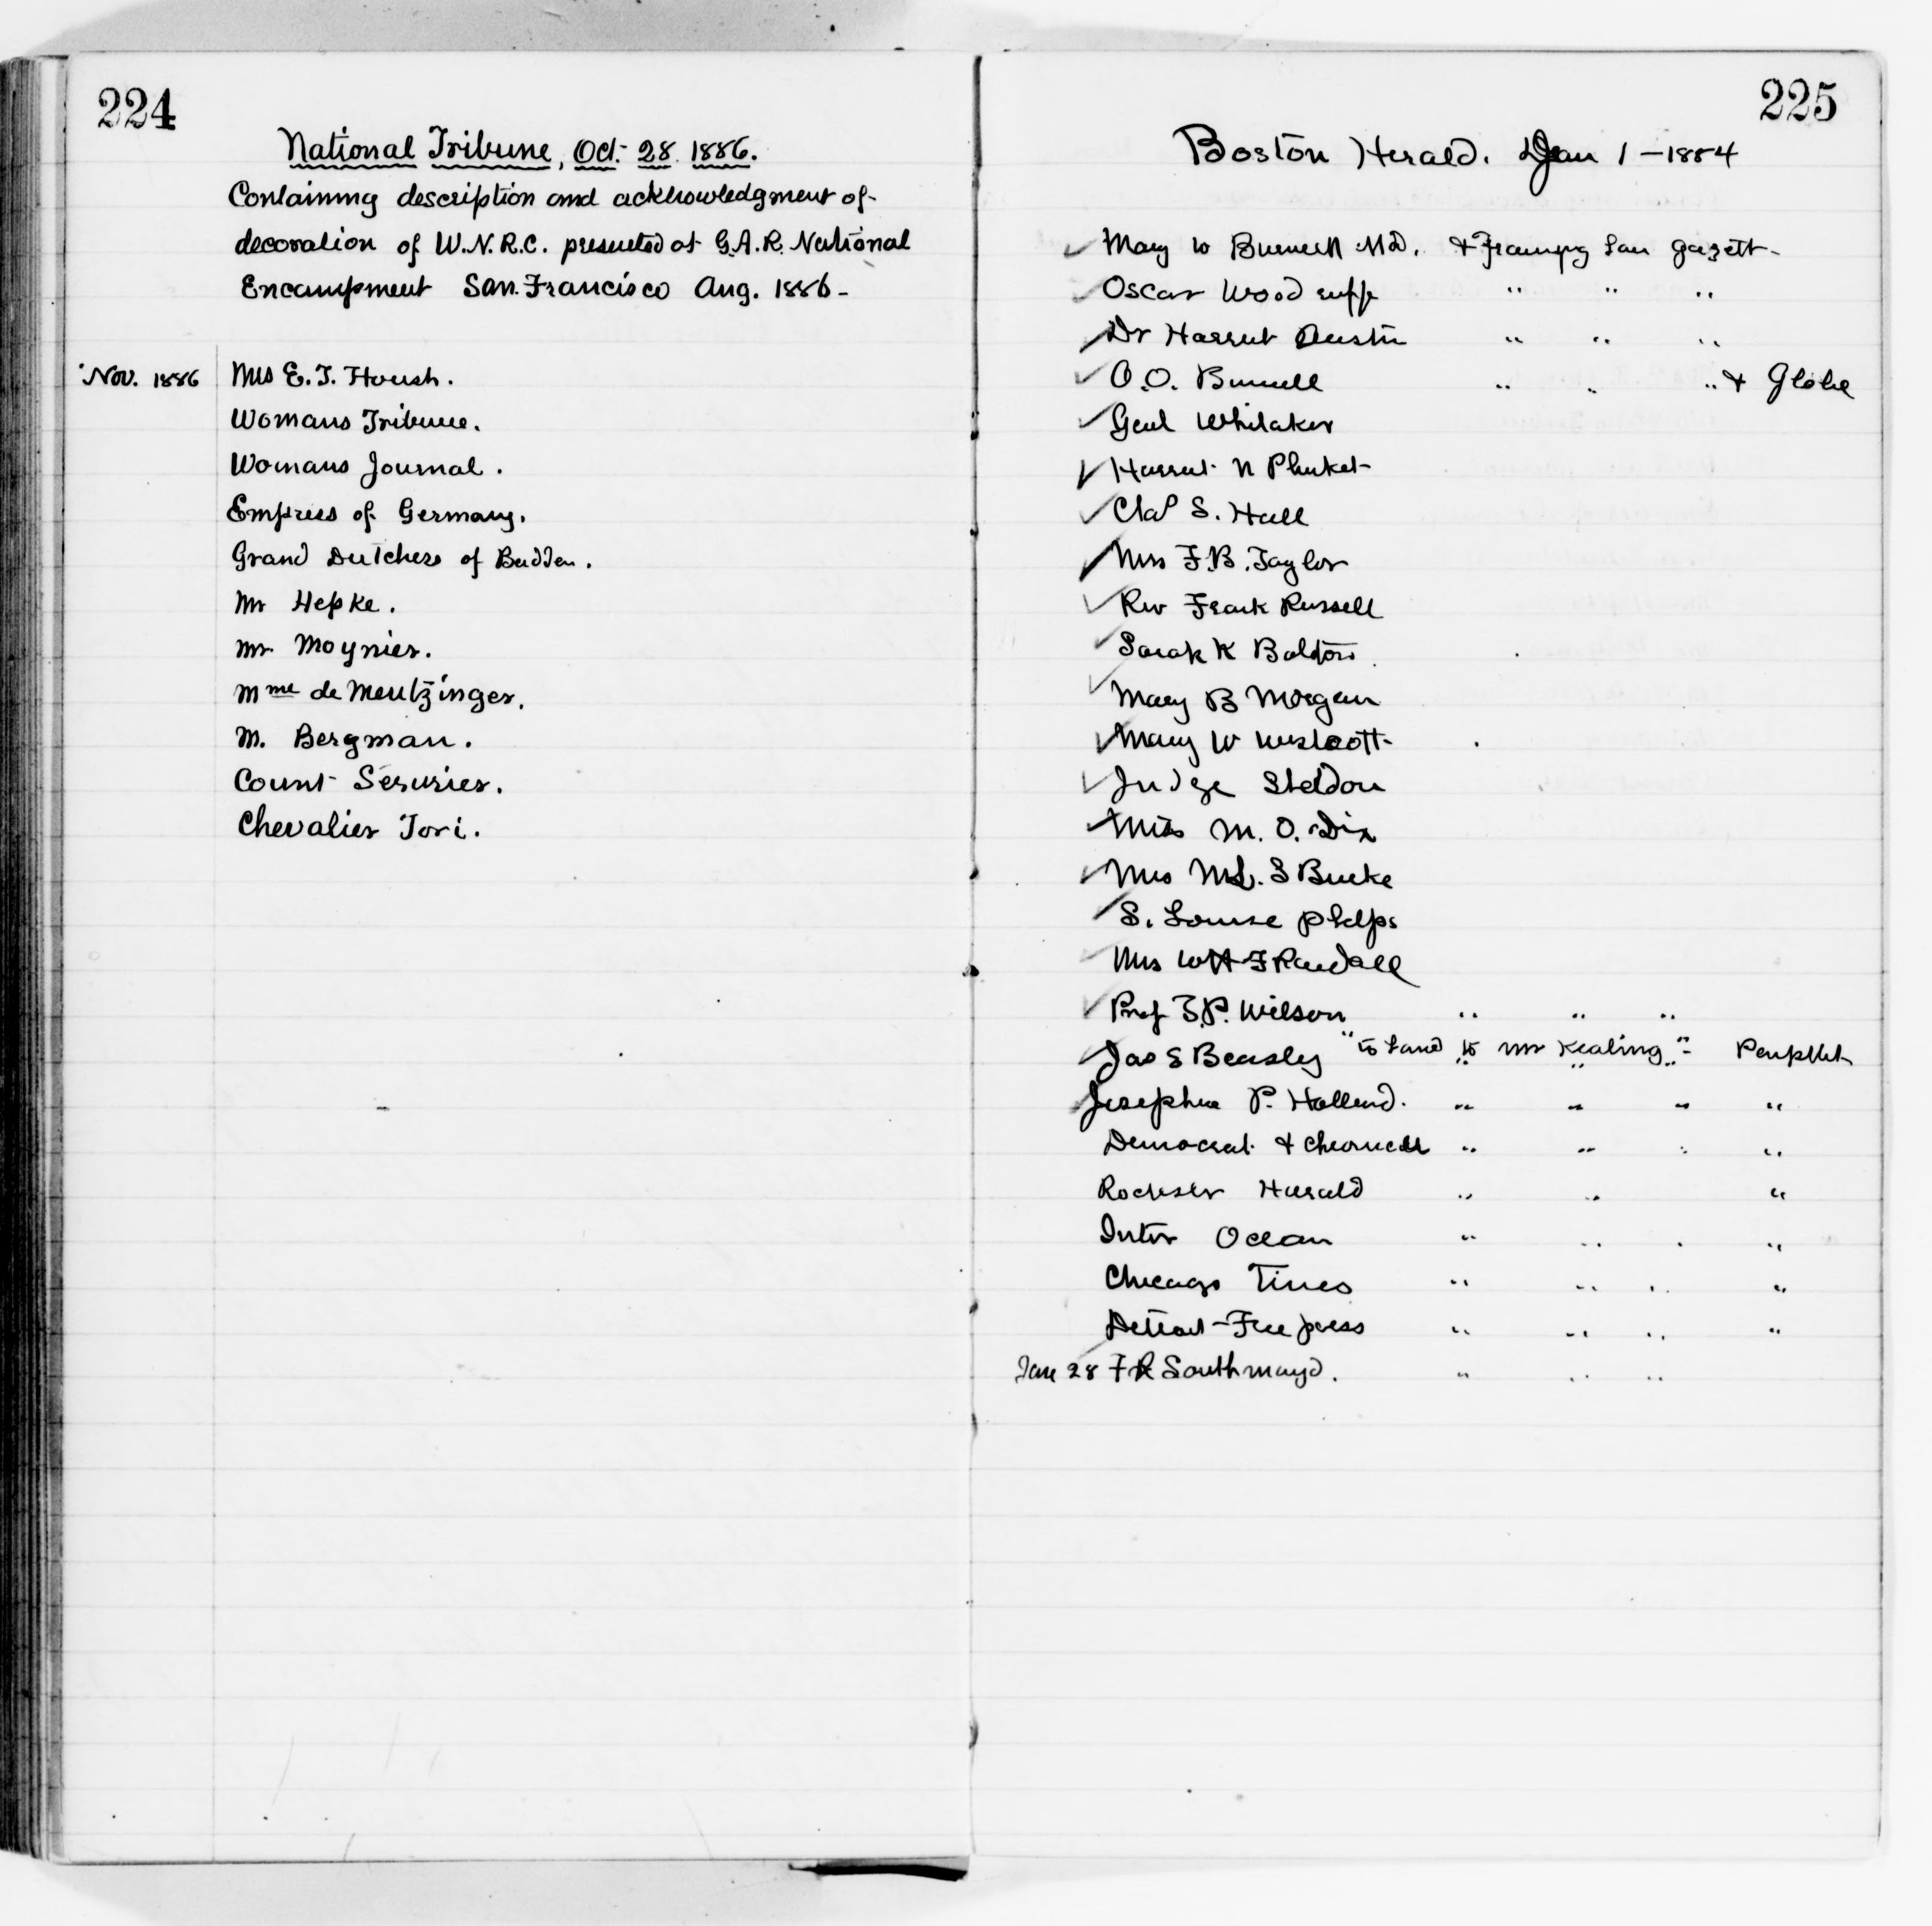 224
National Tribune, Oct. 28. 1886.
Containing description and acknowledgment of
decoration of W.N.R.C. presented at G.A.R. National
Encampment San. Francisco Aug. 1886-
Nov. 1886 Mrs E. T. Housh.
Womans Tribune.
Womans Journal.
Empress of Germany.
Grand Dutchess of Badden.
Mr Hepke.
Mr. Moynier.
Mme de Mentzinger.
M. Bergman.
Count Serurier.
Chevalier Tori.
225
Boston Herald. Jan 1-1884
Mary W Burnett M.D. & Framing Gazett-
Oscar Woodruff " " "
Dr Harriet Austin " " "
O.O. Burnell " " " & Globe
Genl Whitaker
Harriet N Phuket
Chas S. Hall
Mrs F.B. Taylor
Rev Frank Russell
Sarah K Bolton
Mary B Morgan
Mary W Westcott
Judge Sheldon
Miss M. O. Dix
Mrs M.L. S Burke
S. Louise Phelps
Mrs W H F Randall
Prof Z.P. Wilson " " "
Jas S Beasley " to Mr Kealing " Penphlet
Josephine P. Holland. " " " "
Democrat & Chronicle " " " "
Rochester Herald " " "
Inter Ocean " " " "
Chicago Times " " " "
Detroit Free press " " " "
Jan 28 F R Southmayd. " " "